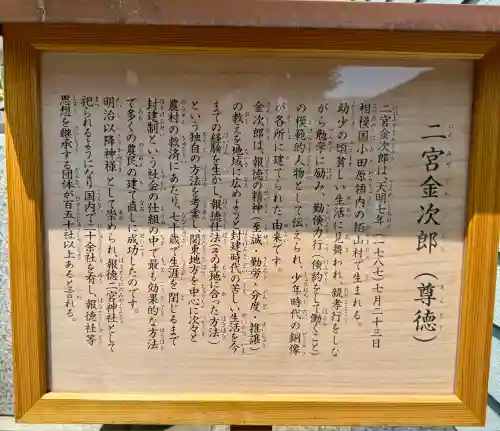 二宮金次郎(尊徳)
二宮金次郎は、天明七年(一七八七)七月二十三日
相模国小田原領内の栢山村で生まれる。
幼少の頃貧しい生活に見舞われ、親孝行をしな
がら勉学に励み、勤倹力行(倹約をして働くこと)
の模範的人物として伝えられ、少年時代の銅像
が各所に建てられた由来です。
金次郎は、報徳の精神(至誠、勤労、分度、推譲)
の教えを地域に広めようと封建時代の苦しい生活を今
までの経験を生かし、報徳仕法(その土地に合った方法)
という独自の方法を考案し、関東地方を中心に次々と
農村の救済にあたり、七十歳で生涯を閉じるまで
封建制という社会の仕組の中で最も効果的な方法
で多くの農民の建て直しに成功したのです。
明治以降神様として崇められ、報徳二宮神社として
祀られるようになり国内で二十余社を有し、報徳社等
思想を継承する団体が百五十社以上あると言れる。